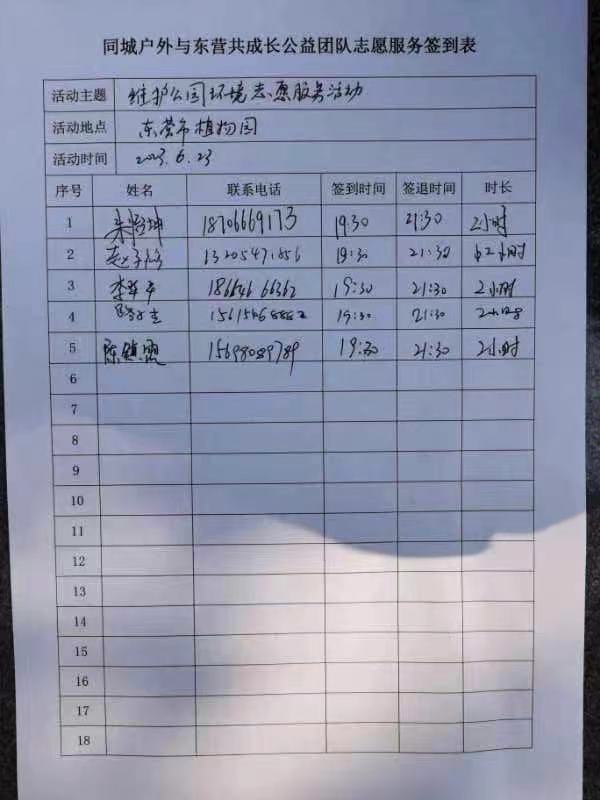 同城户外与东营共成长公益团队志愿服务签到表
活动主题 维护公园环境志愿服务活动
活动地点 东营市植物园
活动时间 2023.6.23
序号 姓名 联系电话 签到时间 签退时间 时长
1 18706669173 19:30 21:30 2小时
2 19:30 21:30 2小时
3 19:30 21:30 2小时
4 19:30 21:30 2小时
5 15698089789 19:30 21:30 2小时
6
7
8
9
10
11
12
13
14
15
16
17
18